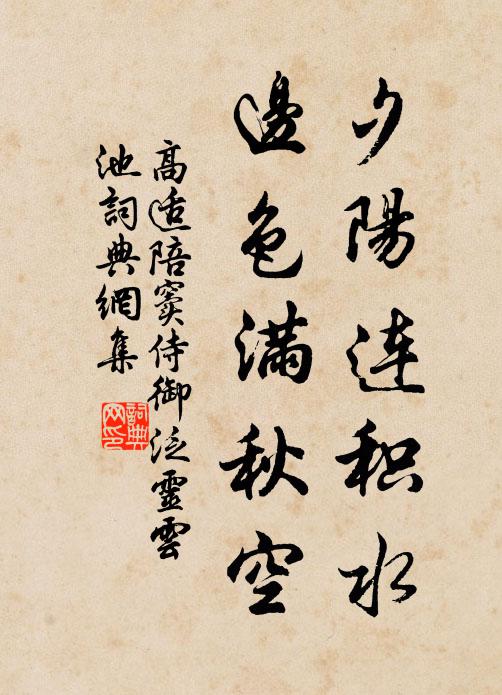 夕陽连积水
邊色滿秋空
高适陪窦侍御泛靈雲
池詞典網集
詞典网印